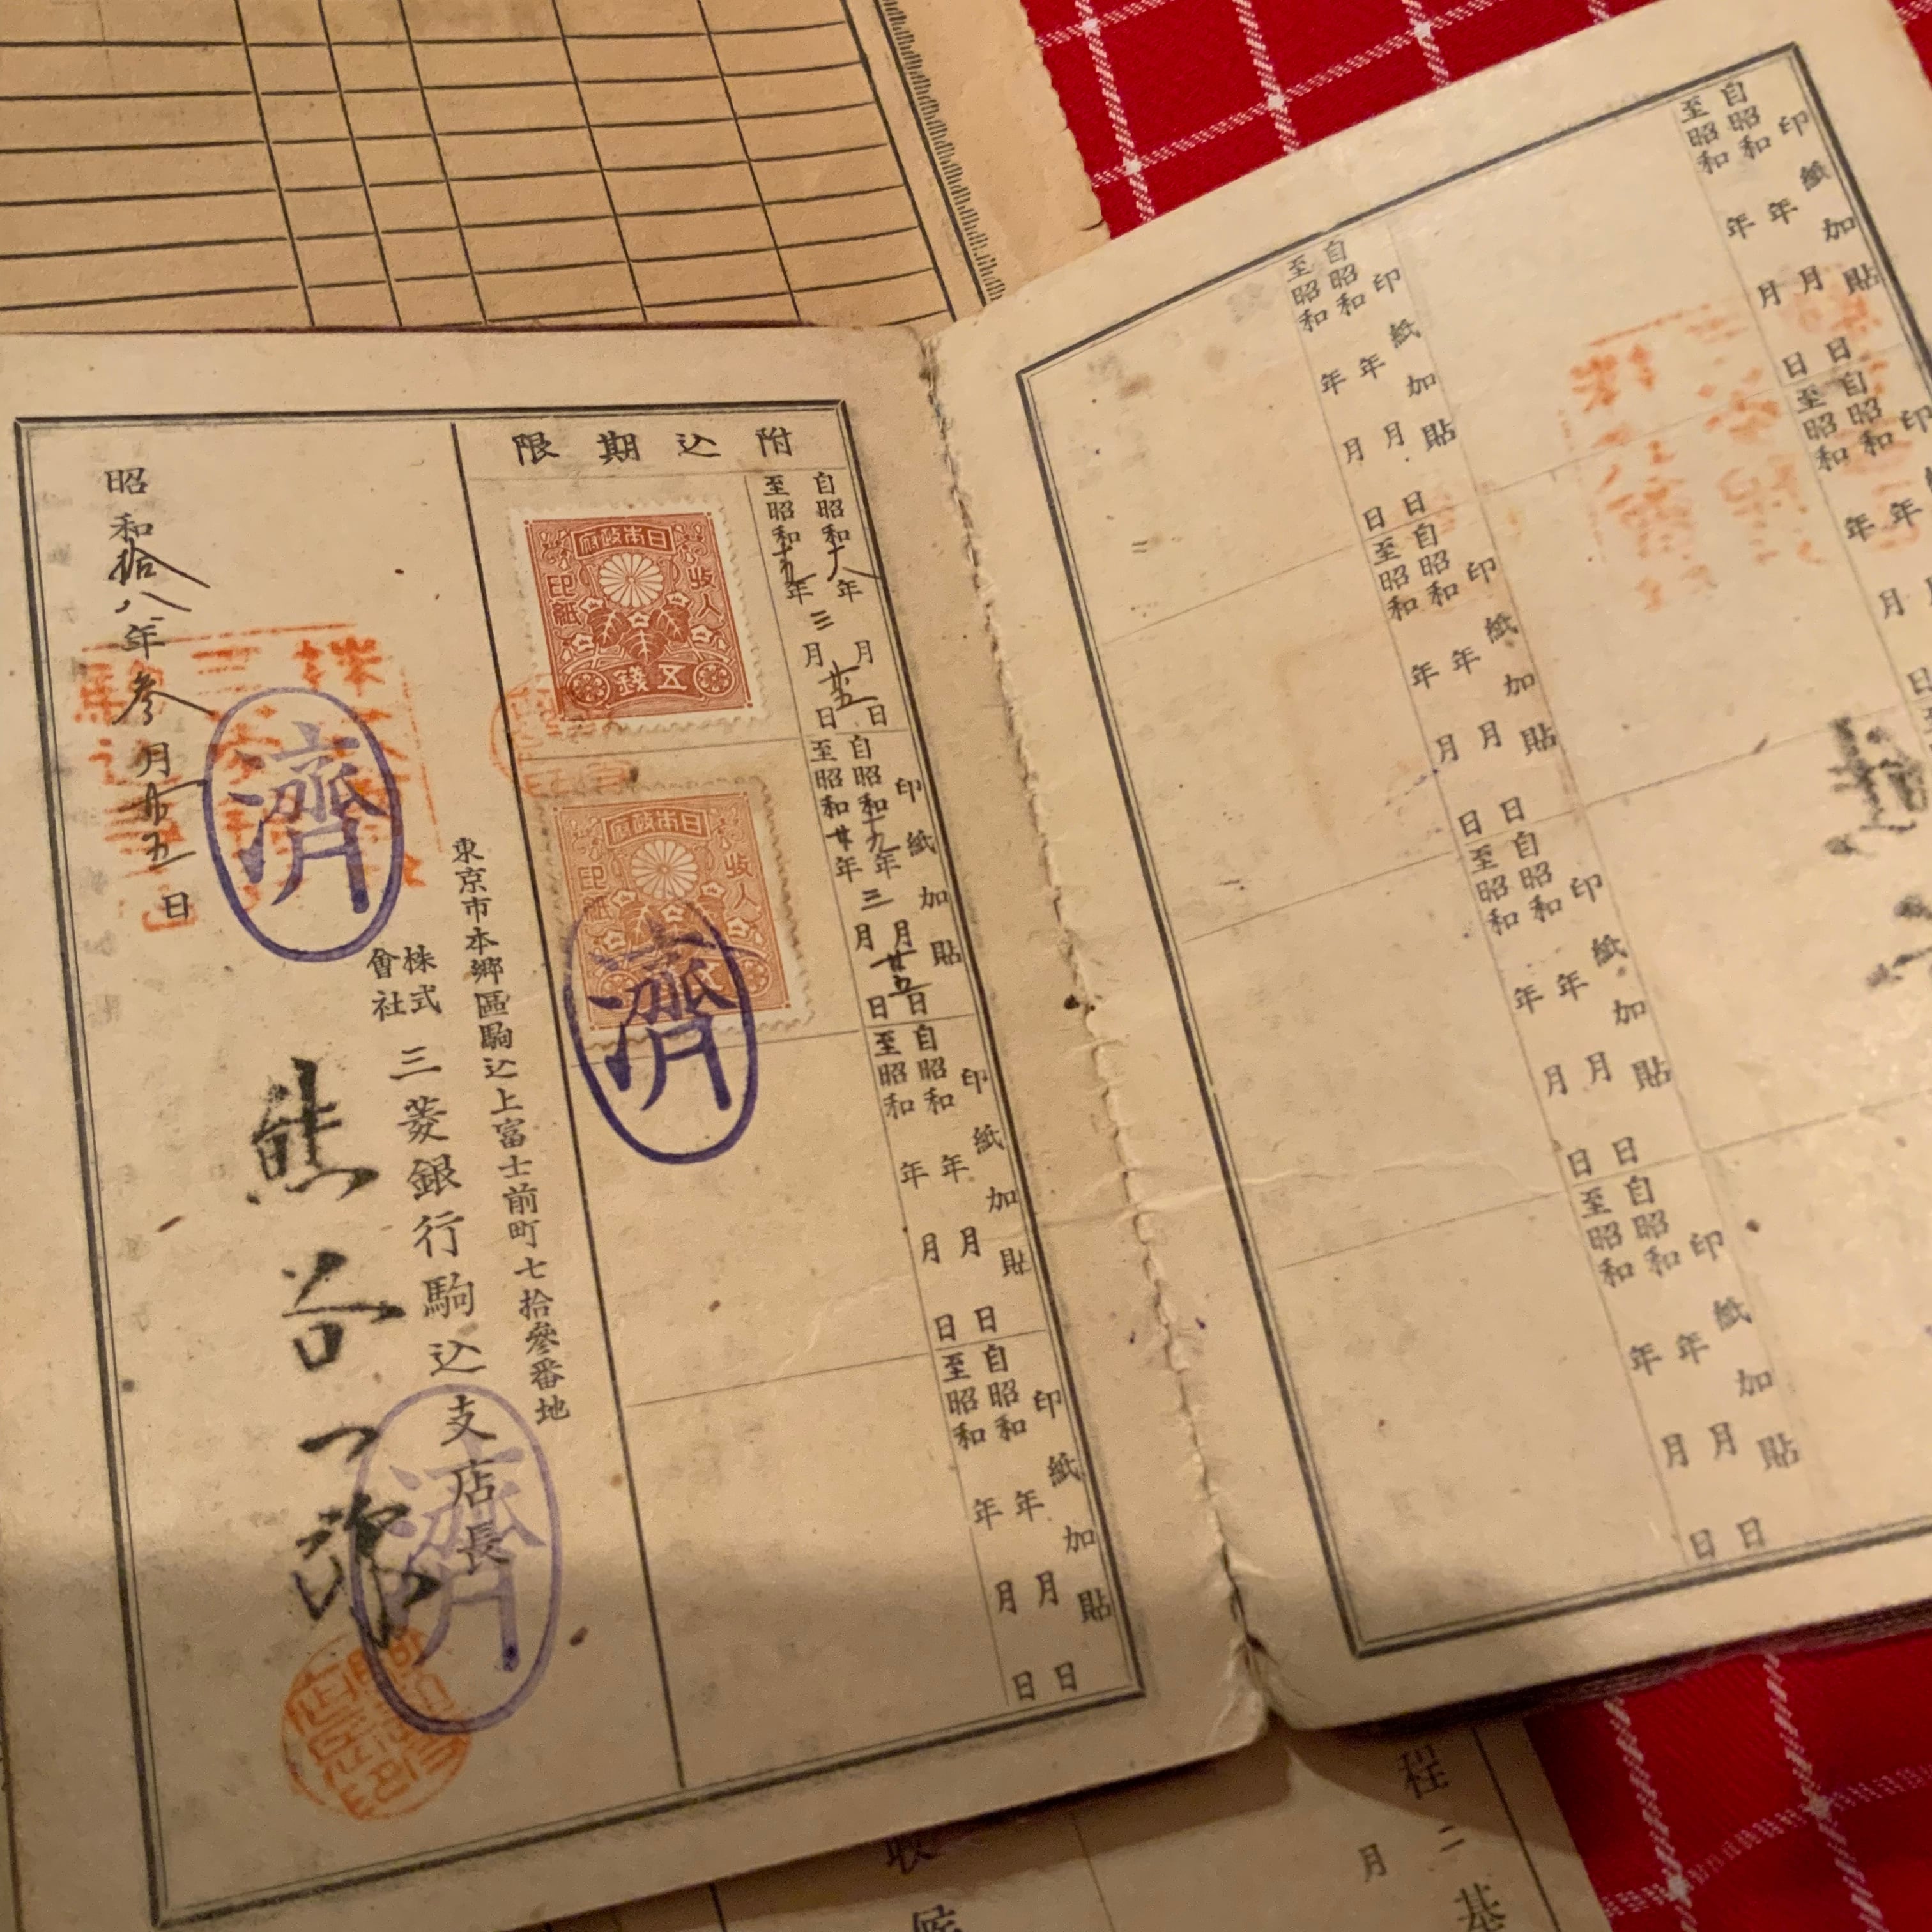 附込期限
自昭和十八年 月 日
至昭和十九年三月廿五日
日本政府
收入印紙
五錢
印紙加貼
自昭和十九年 月 日
至昭和廿年三月廿五日
日本政府
收入印紙
五
濟
印紙加貼
自昭和 年 月 日
至昭和 年 月 日
印紙加貼
自昭和 年 月 日
至昭和 年 月 日
東京市本郷區駒込上富士前町七拾參番地
株式會社三菱銀行駒込支店長
熊谷一
濟
昭和拾八年参月廿五日
濟
印紙加貼
自昭和 年 月 日
至昭和 年 月 日
印紙加貼
自昭和 年 月
至昭和 年 月
印紙加貼
自昭和 年 月 日
至昭和 年 月 日
印紙加貼
自昭和 年 月 日
至昭和 年 月 日
印紙加貼
自昭和 年 月 日
至昭和 年 月 日
印紙加貼
自昭和 年 月 日
至昭和 年 月 日
程二
月
基